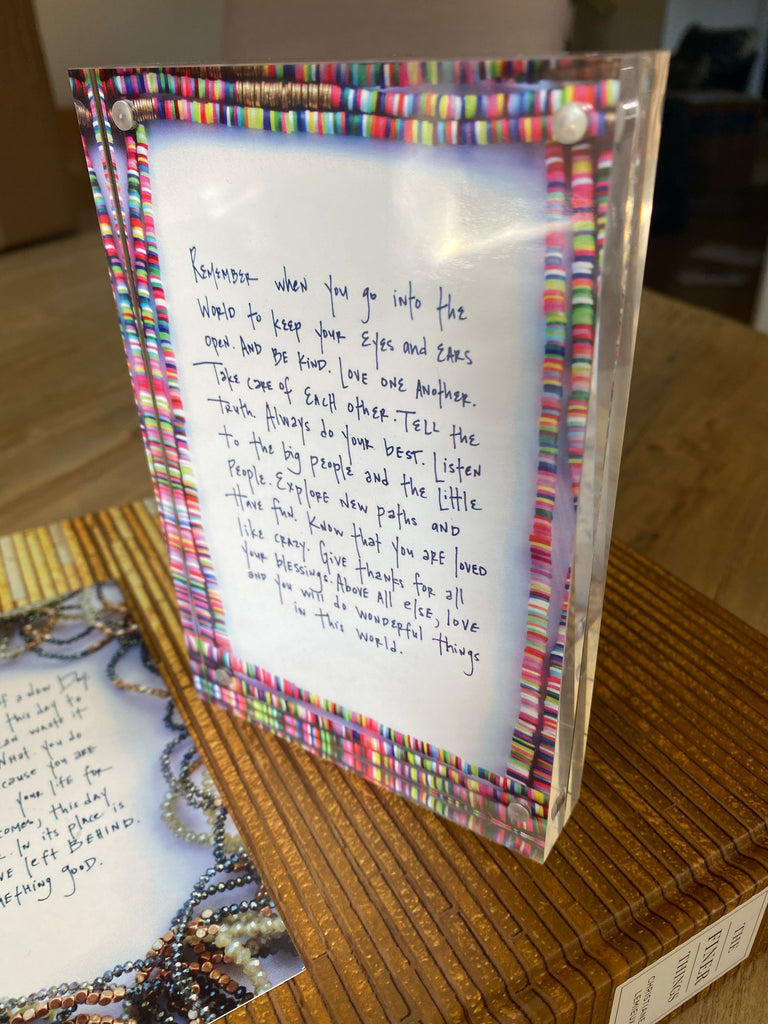 REMEMBER when you go into the
World to keep your Eyes and EARS
open. AND BE KIND. LOVE ONE ANother.
Take care of Each other. TELL the
truth. Always do your BEST. Listen
to the big people and the little
People. Explore new paths and
Have fun. Know that you are loved
like crazy. Give thanks for all
your blessings. Above All else, love
and you will do wonderful things
in this world.
of a new Day
this day to
waste it
What you do
because you are
your life for
comes, this day
In its place is
left BEHIND.
something good.
THE
FINER
THINGS
CHRISTIANE
LEMIEUX